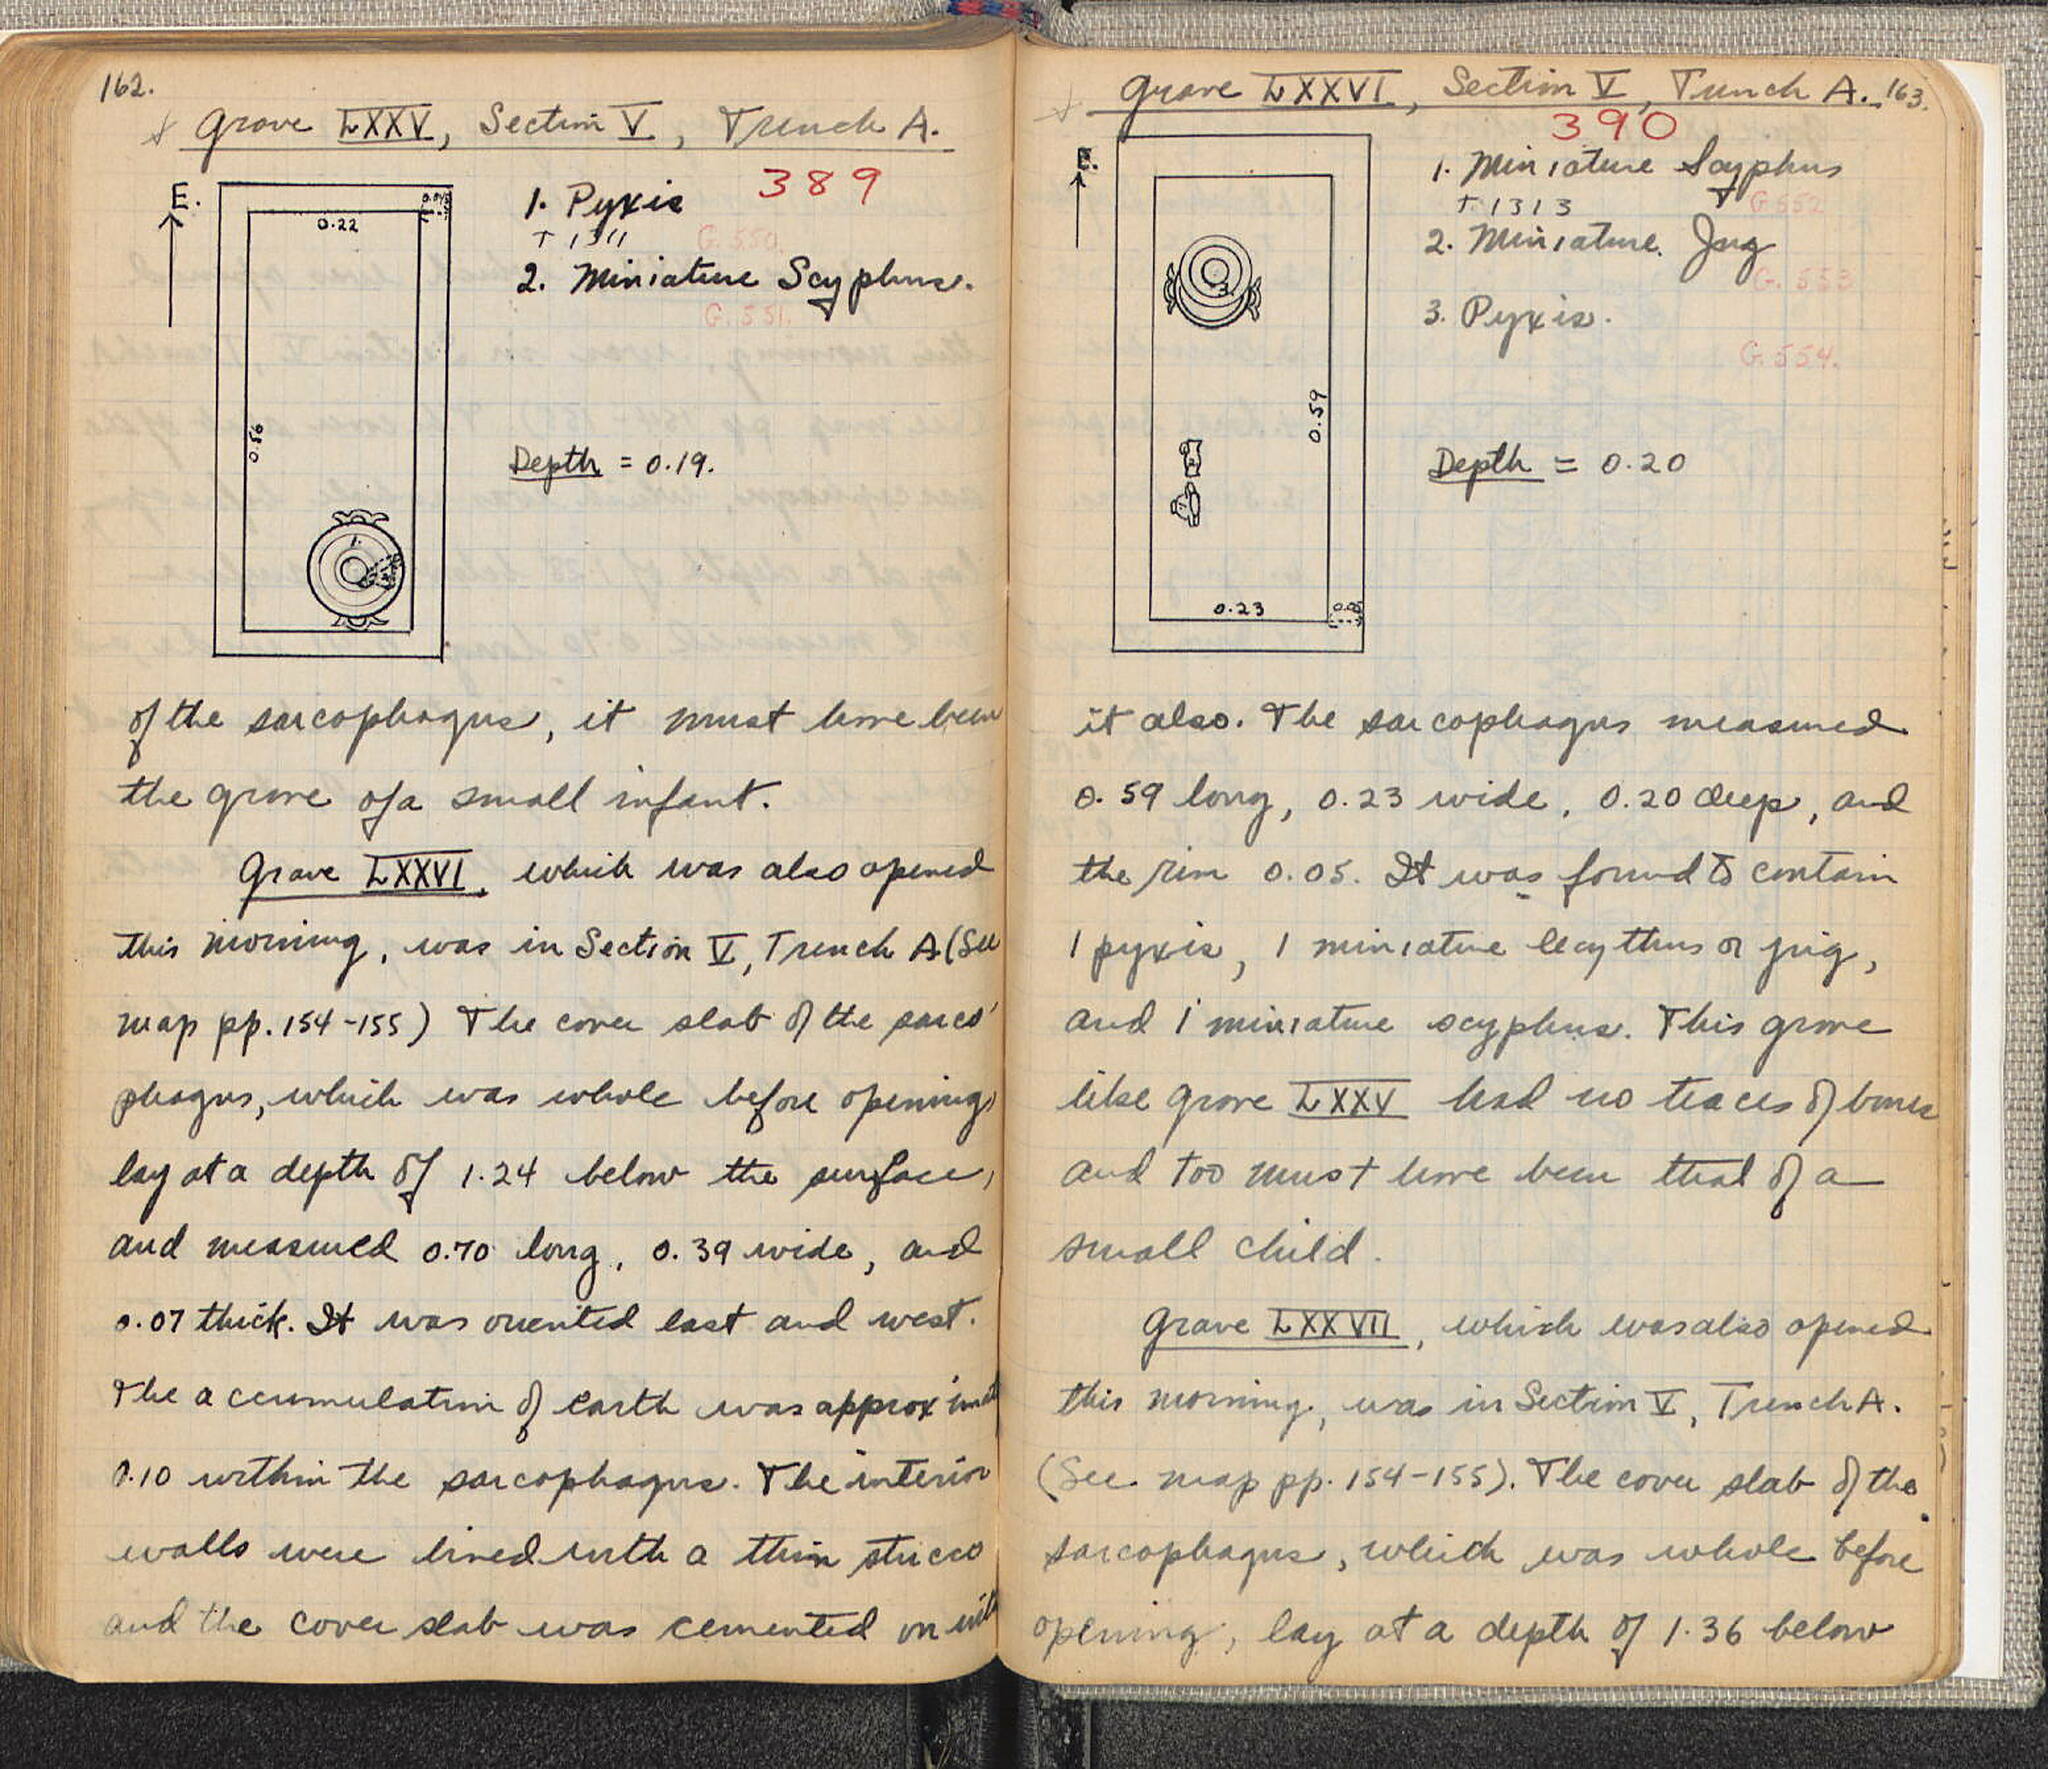 162.
Grave LXXV, Section V, Trench A.
389
E.
0.22
0.56
1. Pyxis
T 1311
G. 550.
2. Miniature Scyphus.
G. 551.
Depth = 0.19.
1.
of the sarcophagus, it must have been
the grave of a small infant.
Grave LXXVI, which was also opened
this morning, was in Section V, Trench A (See
map pp. 154-155) The cover slab of the sarco
phagus, which was whole before opening,
lay at a depth of 1.24 below the surface,
and measured 0.70 long, 0.39 wide, and
0.07 thick. It was oriented east and west.
The accumulation of earth was approximat
0.10 within the sarcophagus. The interior
walls were lined with a thin stucco
and the cover slab was cemented on with
Grave LXXVI, Section V, Trench A.
163.
390
E.
1. Miniature Scyphus
T 1313
G 552
2. Miniature Jug
G. 553
3. Pyxis.
G. 554.
0.59
0.23
0.05
3.
Depth = 0.20
it also. The sarcophagus measured
0.59 long, 0.23 wide, 0.20 deep, and
the rim 0.05. It was found to contain
1 pyxis, 1 miniature lecythus or jug,
and 1 miniature scyphus. This grave
like grave LXXV had no traces of bones
and too must have been that of a
small child.
Grave LXXVII, which was also opened
this morning, was in Section V, Trench A.
(See map pp. 154-155). The cover slab of the
sarcophagus, which was whole before
opening, lay at a depth of 1.36 below